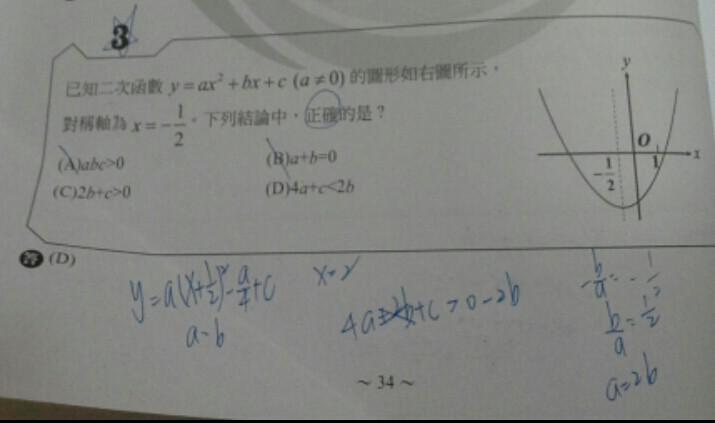 3
已知二次函數 y=ax²+bx+c (a≠0) 的圖形如右圖所示，
對稱軸為 x=-1/2，下列結論中，正確的是？
(A)abc>0
(B)a+b=0
(C)2b+c>0
(D)4a+c<2b
y
O
x
1
-1/2
答 (D)
y=a(x+1/2)²-a/4+c
a-b
4a
+c>0-2b
-b/a=-1/2
b/a=1/2
a=2b
~34~